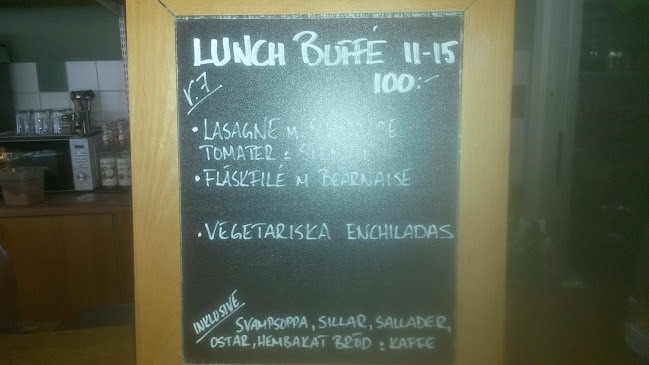 LUNCH BUFFÉ 11-15
V:7 100:-
• LASAGNE M.
TOMATER &
• FLÄSKFILÉ M BEARNAISE
• VEGETARISKA ENCHILADAS
INKLUSIVE
SVAMPSOPPA, SILLAR, SALLADER,
OSTAR, HEMBAKAT BRÖD & KAFFE